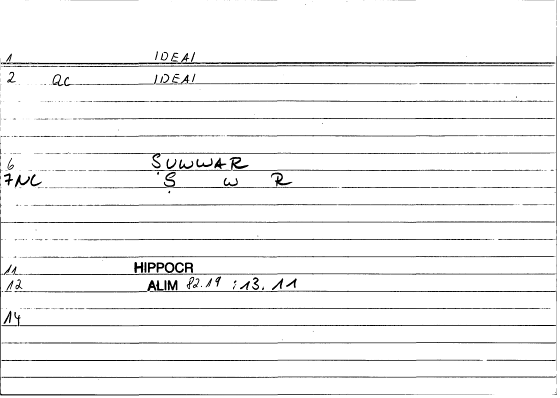 1 IDEAI
2 QC IDEAI
6 ṢUWWAR
7NC Ṣ W R
11 HIPPOCR
12 ALIM 82.19 :13.11
14